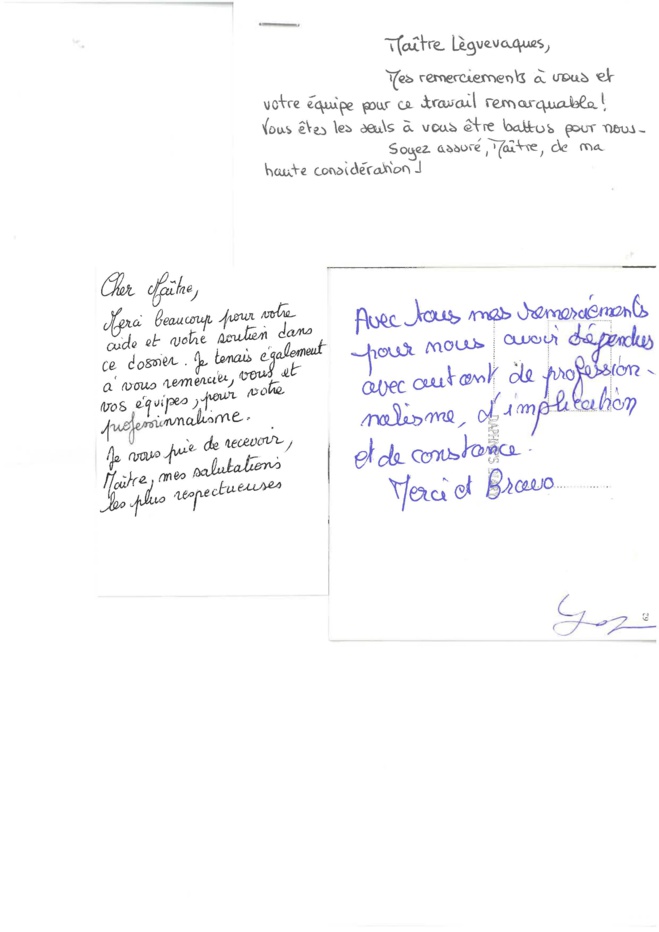 Maître Lèguevaques,
Mes remerciements à vous et
votre équipe pour ce travail remarquable !
Vous êtes les seuls à vous être battus pour nous.
Soyez assuré, Maître, de ma
haute considération !
Cher Maître,
Merci beaucoup pour votre
aide et votre soutien dans
ce dossier. Je tenais également
à vous remercier, vous et
vos équipes, pour votre
professionnalisme.
Je vous prie de recevoir,
Maître, mes salutations
les plus respectueuses
Avec tous mes remerciements
pour nous avoir défendus
avec autant de profession-
nalisme, d'implication
et de constance.
Merci et Bravo